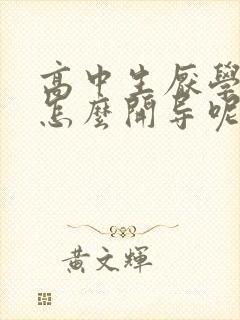 高中生厭學
怎麼開导呢
黃文輝